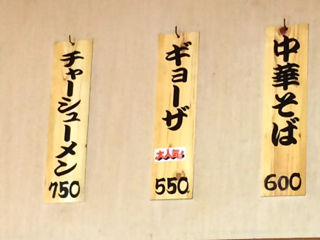 中華そば
600
ギョーザ
大人気!
550
チャーシューメン
750